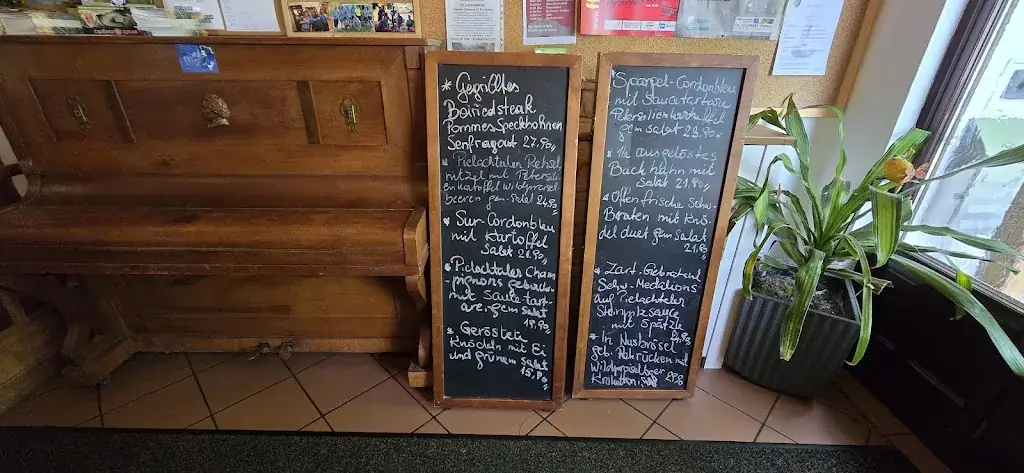 * Gegrilltes
Beiriedsteak
Pommes Speckbohnen
Senfragout 27.90,-
* Pielachtaler Rehsch
nitzel mit Petersili
enkartoffel Wildpreisel
beeren gem. Salat 24,90
* Sur-Cordonbleu
mit Kartoffel
Salat 21.90,-
* Pielachtaler Cham
pignons gebach.
mit Sauce tart-
are. gem Salat
18.90,-
* Geröstete
Knödeln mit Ei
und grünem Salat
15,90
* Spargel-Cordonbleu
mit Sauce tartare
Petersilienkartoffel
gem Salat 23.90,-
* 1/2 ausgelöstes
Backhuhn mit
Salat 21.90,-
* Offenfrische Schw.
Braten mit Knö
del duet gem Salat
21.90
* Zart-Gebratene
Schw. Medalions
auf Pielachtaler
Steinpilzsauce
mit Spätzle
* In Nusbrösel
geb. Rehrücken mit